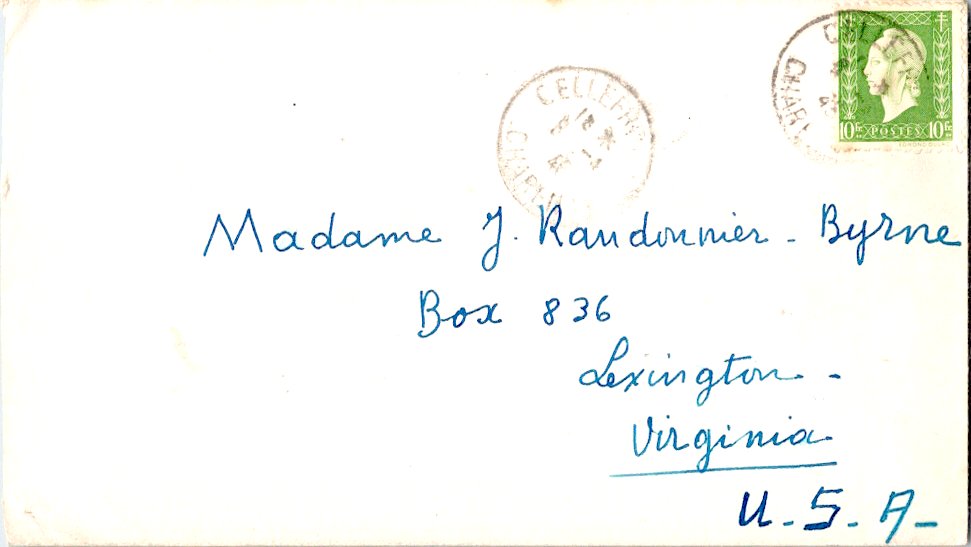 RF
10Fr POSTES 10Fr
CELLEFR
CHAR
CELLEFR
18 *
CHAR
Madame J. Randonnier - Byrne
Box 836
Lexington -
Virginia
U. S. A -